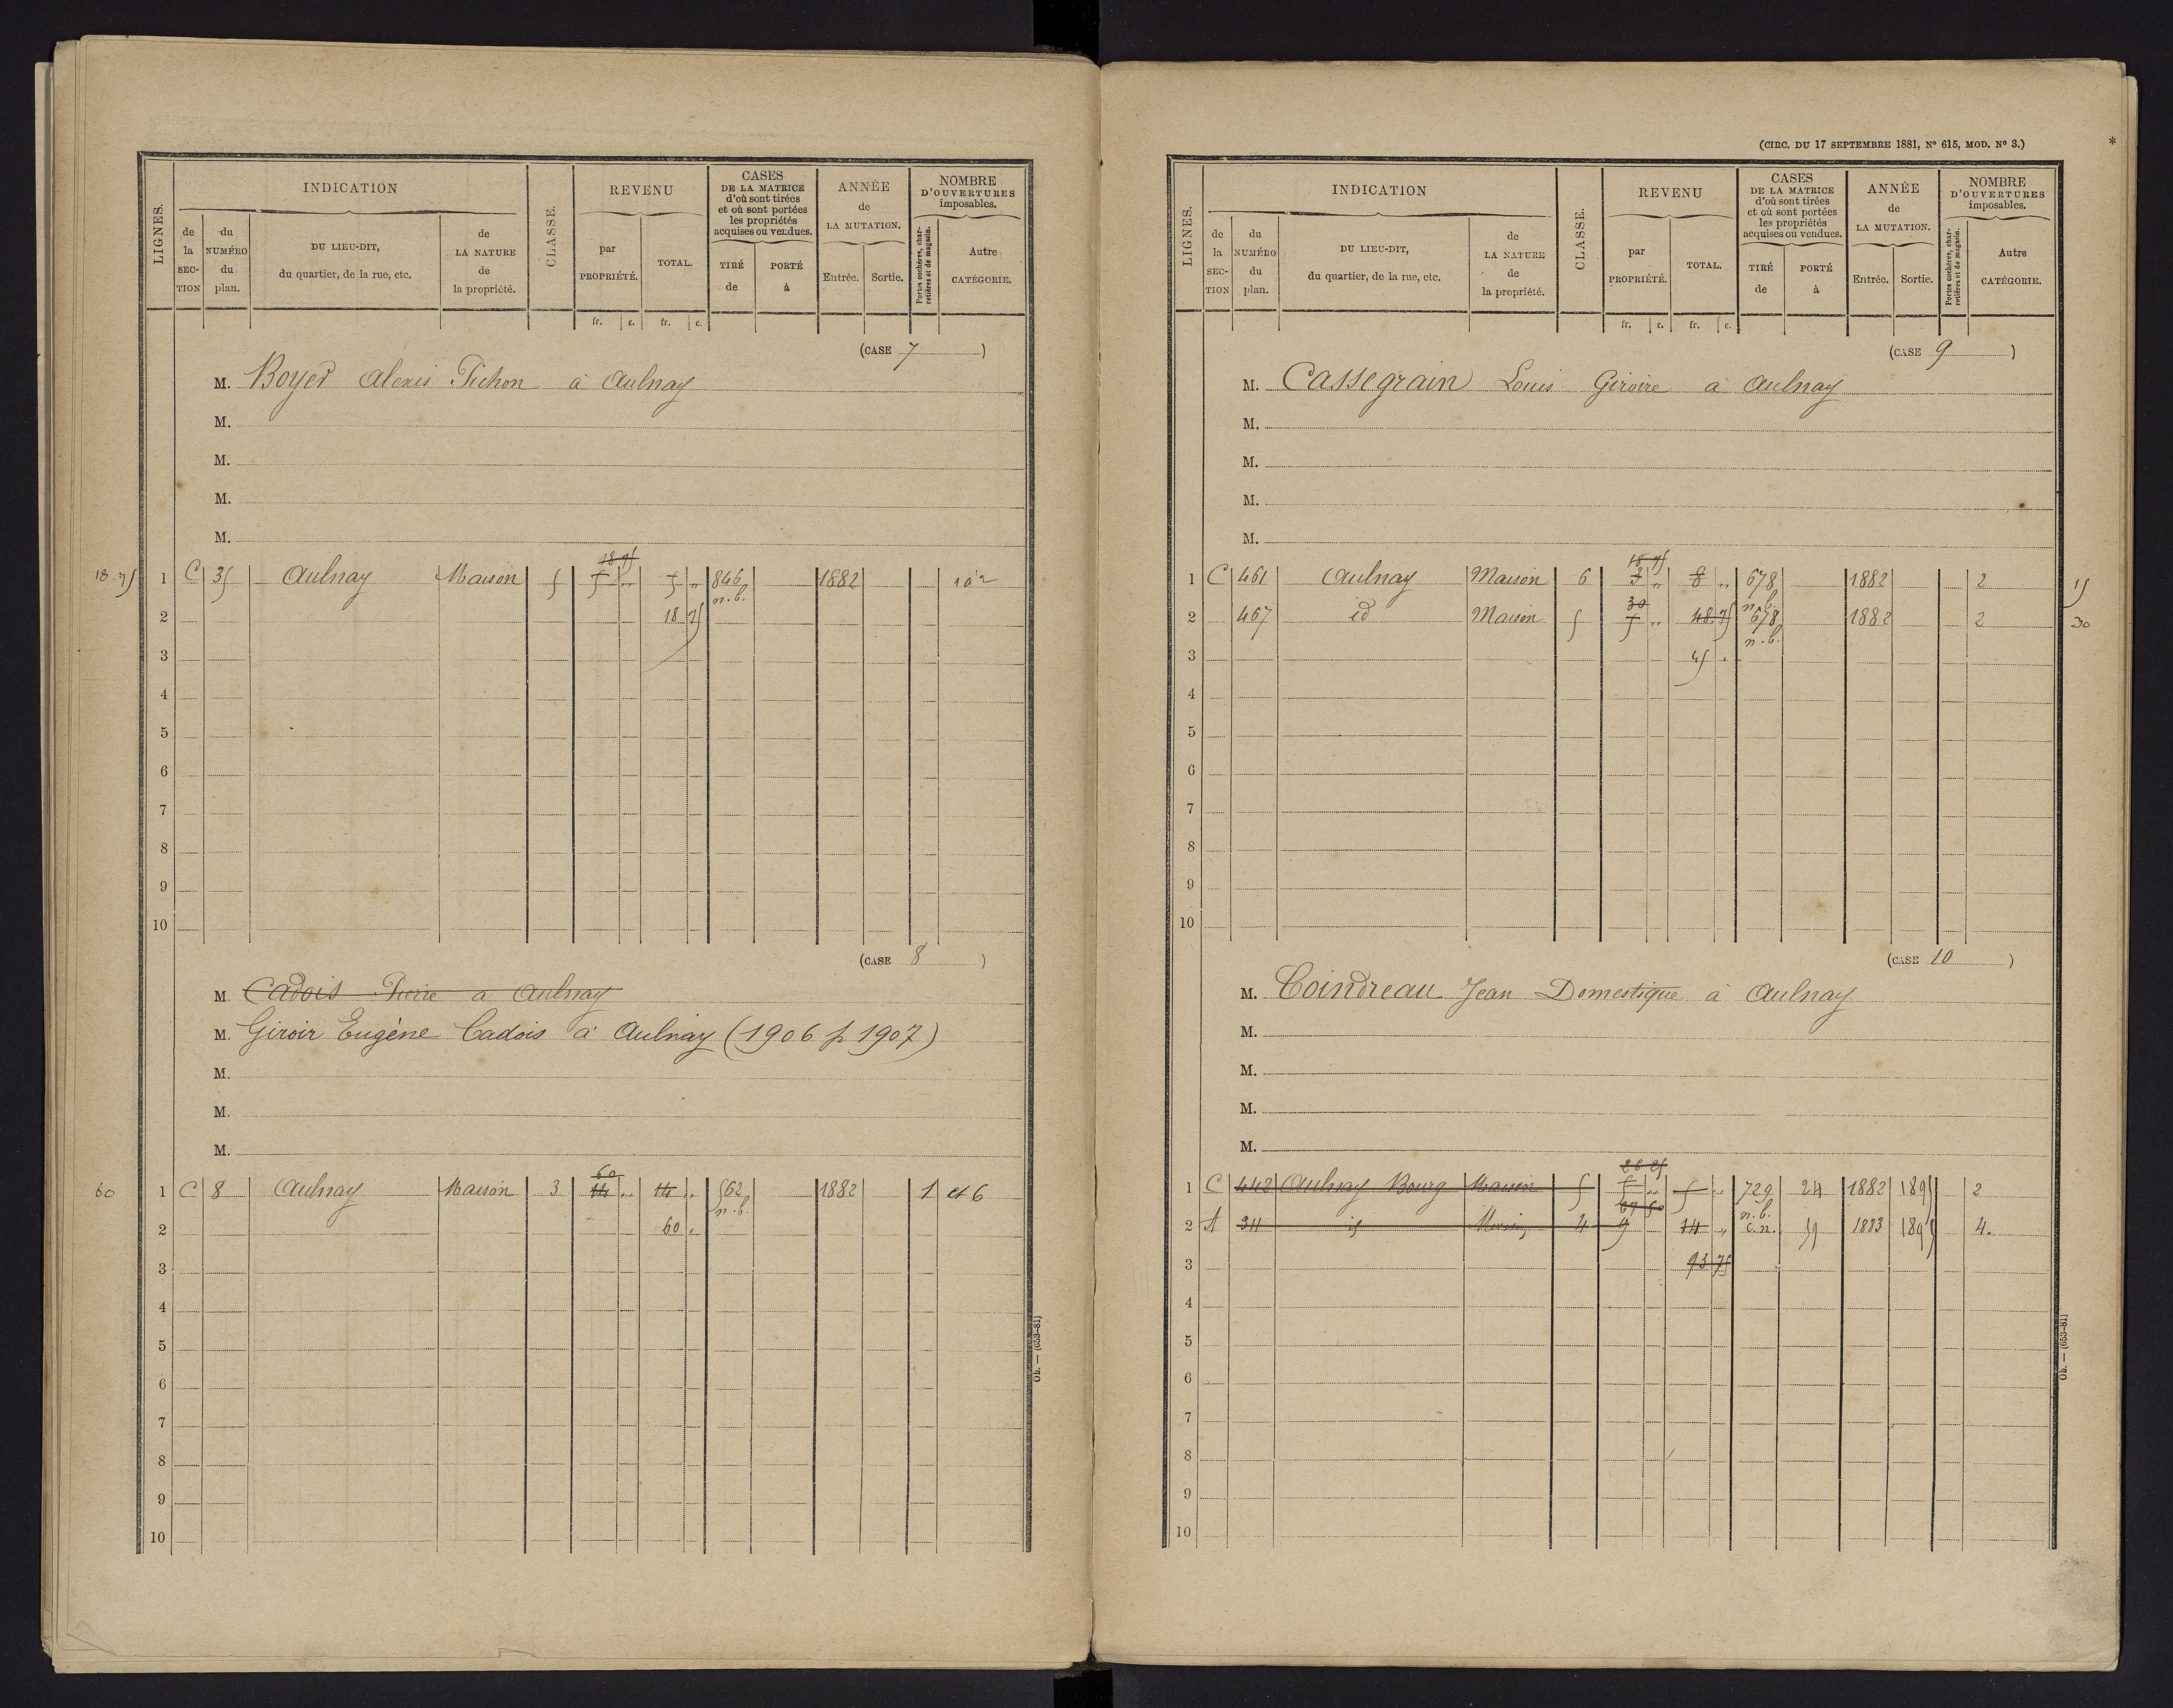 LIGNES.
INDICATION
de la SECTION
du NUMÉRO du plan.
DU LIEU-DIT, du quartier, de la rue, etc.
de LA NATURE de la propriété.
CLASSE.
REVENU
par PROPRIÉTÉ.
TOTAL.
CASES DE LA MATRICE d'où sont tirées et où sont portées les propriétés acquises ou vendues.
TIRÉ de
PORTÉ à
ANNÉE de LA MUTATION.
Entrée. Sortie.
NOMBRE D'OUVERTURES imposables.
Portes cochères, charretières et de magasin.
Autre CATÉGORIE.
fr. c. fr. c.
(CASE 7 )
M. Boyer Alexis Pichon à Aulnay
M.
M.
M.
M.
18 75
18 75 1 C 35 Aulnay Maison 5 5 " 5 " 846 1882
n.b.
2 18 75
3
4
5
6
7
8
9
10
(CASE 8 )
M. Cadois Pierre à Aulnay
M. Giroir Eugène Cadois à Aulnay (1906 p 1907)
M.
M.
M.
60
60 1 C 8 Aulnay Maison 3 14 " 14 " 562 1882 1 et 6
n.b.
2 60 "
3
4
5
6
7
8
9
10
Ob. — (653-81)
(CIRC. DU 17 SEPTEMBRE 1881, N° 615, MOD. N° 3.)
*
LIGNES.
INDICATION
de la SECTION
du NUMÉRO du plan.
DU LIEU-DIT, du quartier, de la rue, etc.
de LA NATURE de la propriété.
CLASSE.
REVENU
par PROPRIÉTÉ.
TOTAL.
CASES DE LA MATRICE d'où sont tirées et où sont portées les propriétés acquises ou vendues.
TIRÉ de
PORTÉ à
ANNÉE de LA MUTATION.
Entrée. Sortie.
NOMBRE D'OUVERTURES imposables.
Portes cochères, charretières et de magasin.
Autre CATÉGORIE.
fr. c. fr. c.
(CASE 9 )
M. Cassegrain Louis Giroire à Aulnay
M.
M.
M.
M.
1 C 461 Aulnay Maison 6 3 " 8 " 678 1882 2 15
30 n.b.
2 467 id Maison 5 5 " 48 75 678 1882 2 30
n.b.
3 45 "
4
5
6
7
8
9
10
(CASE 10 )
M. Coindreau Jean Domestique à Aulnay
M.
M.
M.
M.
1 C 442 Aulnay Bourg Maison 5 5 " 5 " 729 24 1882 1895 2
67 50 n.b.
2 A 311 id 4 9 14 " c.n. 1883 1895 4.
3 93 75
4
5
6
7
8
9
10
Ob. — (653-81)